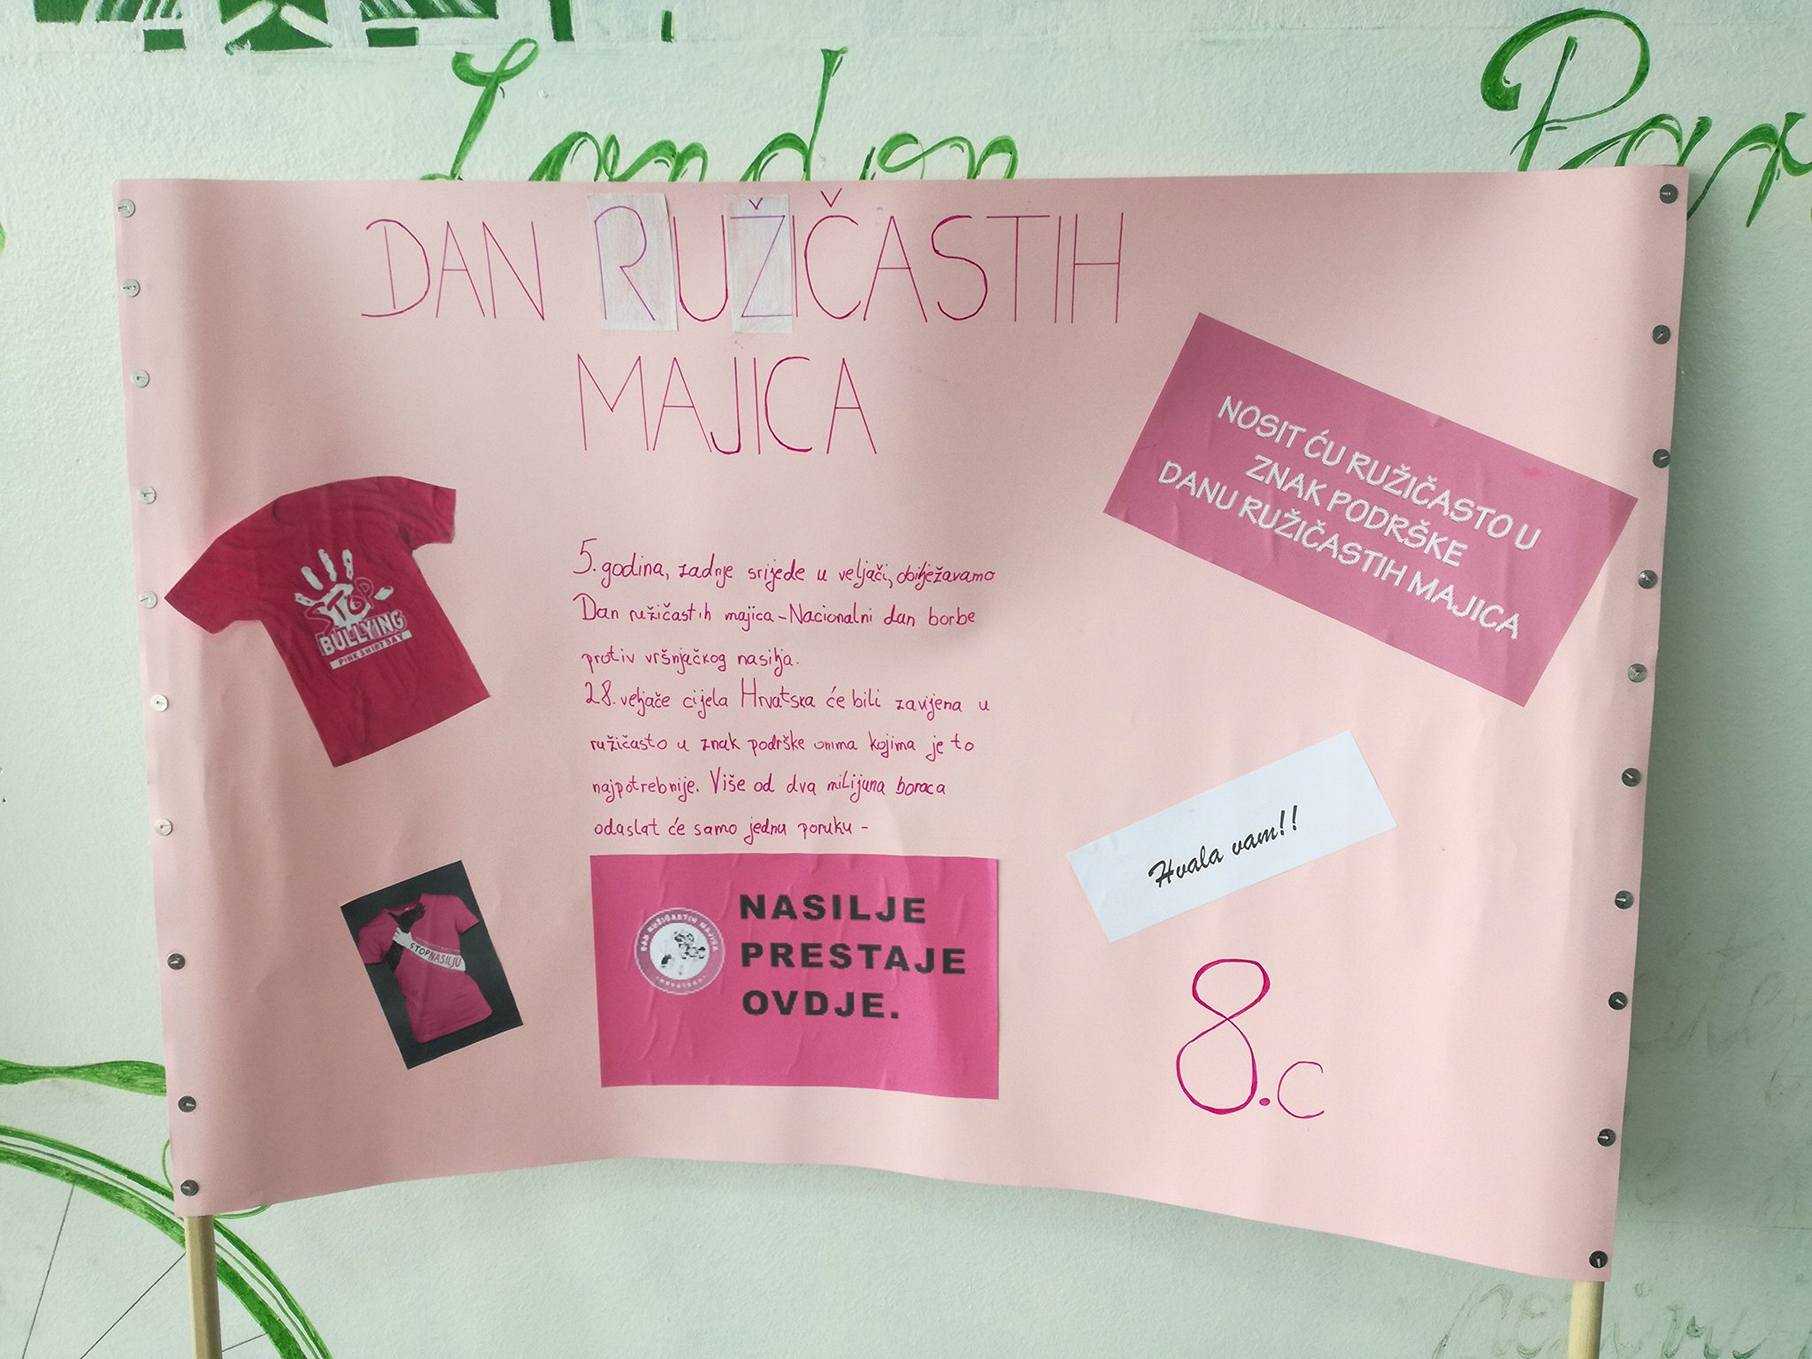 London
DAN RUŽIČASTIH
MAJICA
NOSIT ĆU RUŽIČASTO U
ZNAK PODRŠKE
DANU RUŽIČASTIH MAJICA
STOP
BULLYING
PINK SHIRT DAY
5. godina, zadnje srijede u veljači, obilježavamo
Dan ružičastih majica - Nacionalni dan borbe
protiv vršnjačkog nasilja.
28. veljače cijela Hrvatska će bili zavijena u
ružičasto u znak podrške onima kojima je to
najpotrebnije. Više od dva milijuna boraca
odaslat će samo jednu poruku -
Hvala vam!!
STOP NASILJU
DAN RUŽIČASTIH MAJICA
NASILJE
PRESTAJE
OVDJE.
8.c